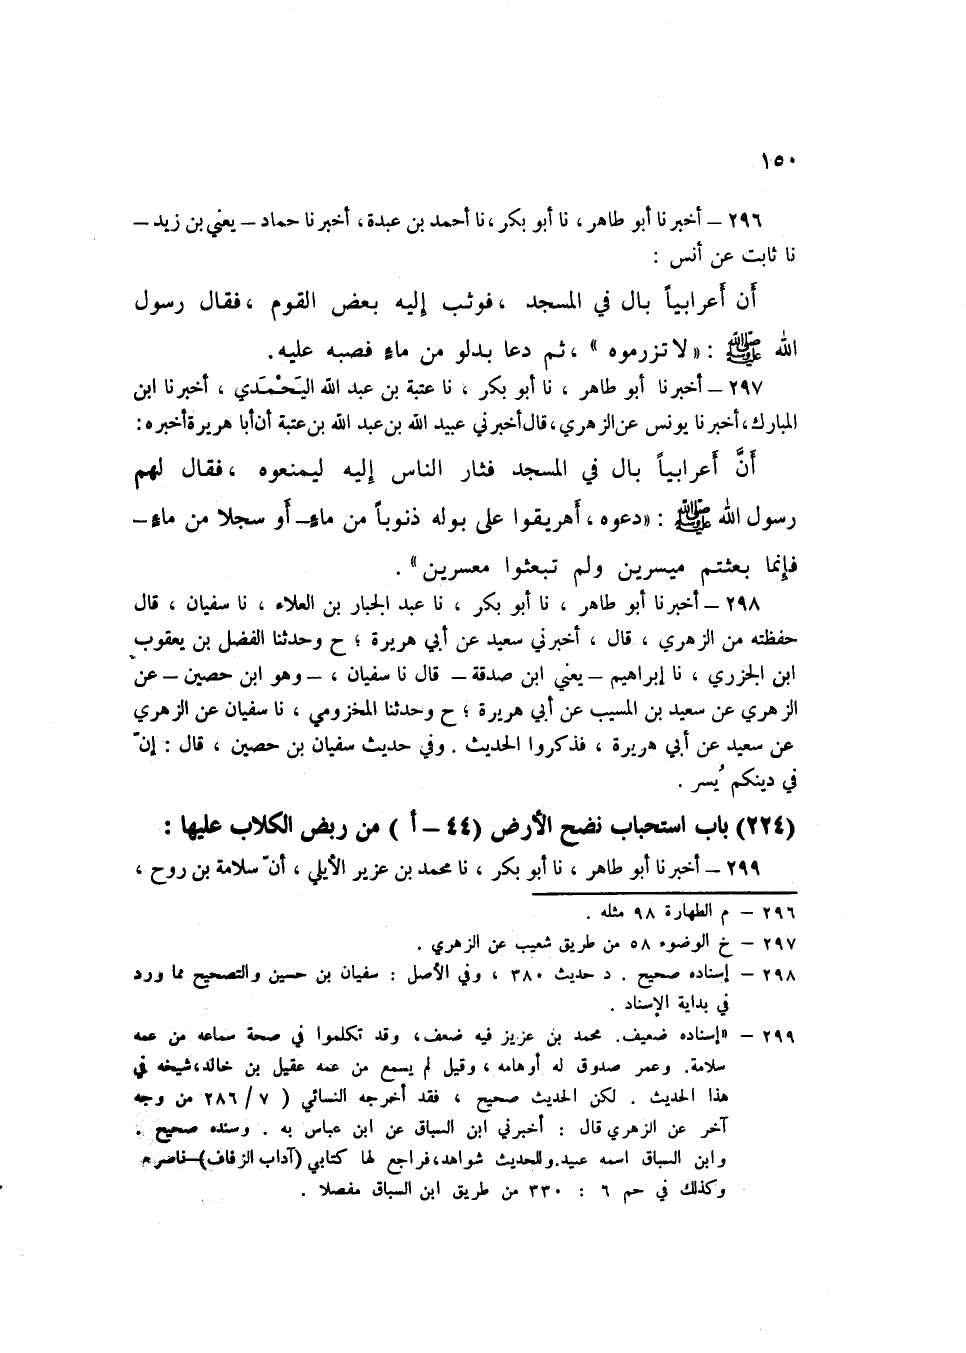 ١٥٠
٢٩٦ – أخبرنا أبو طاهر ، نا أبو بكر ، نا أحمد بن عبدة ، أخبرنا حماد – يعني بن زيد –
نا ثابت عن أنس :
أَن أَعرابياً بال في المسجد ، فوثب إليه بعض القوم ، فقال رسول
الله ﷺ : « لا تزرموه » ، ثم دعا بدلو من ماءٍ فصبه عليه .
٢٩٧ – أخبرنا أبو طاهر ، نا أبو بكر ، نا عتبة بن عبد الله اليَحْمَدي ، أخبرنا ابن
المبارك ، أخبرنا يونس عن الزهري ، قال أخبرني عبيد الله بن عبد الله بن عتبة أن أبا هريرة أخبره :
أَنَّ أَعرابياً بال في المسجد فثار الناس إليه ليمنعوه ، فقال لهم
رسول الله ﷺ : « دعوه ، أَهريقوا على بوله ذنوباً من ماءٍ – أَو سجلا من ماءٍ –
فإنما بعثتم ميسرين ولم تبعثوا معسرين » .
٢٩٨ – أخبرنا أبو طاهر ، نا أبو بكر ، نا عبد الجبار بن العلاء ، نا سفيان ، قال
حفظته من الزهري ، قال ، أخبرني سعيد عن أبي هريرة ؛ ح وحدثنا الفضل بن يعقوب
ابن الجزري ، نا إبراهيم – يعني ابن صدقة – قال نا سفيان ، – وهو ابن حصين – عن
الزهري عن سعيد بن المسيب عن أبي هريرة ؛ ح وحدثنا المخزومي ، نا سفيان عن الزهري
عن سعيد عن أبي هريرة ، فذكروا الحديث . وفي حديث سفيان بن حصين ، قال : إنّ
في دينكم يُسر .
(٢٢٤) باب استحباب نضح الأرض (٤٤ – أ ) من ربض الكلاب عليها :
٢٩٩ – أخبرنا أبو طاهر ، نا أبو بكر ، نا محمد بن عزير الأيلي ، أنّ سلامة بن روح ،
٢٩٦ – م الطهارة ٩٨ مثله .
٢٩٧ – خ الوضوء ٥٨ من طريق شعيب عن الزهري .
٢٩٨ – إسناده صحيح . د حديث ٣٨٠ ، وفي الأصل : سفيان بن حسين والتصحيح مما ورد
في بداية الإسناد .
٢٩٩ – « إسناده ضعيف . محمد بن عزيز فيه ضعف ، وقد تكلموا في صحة سماعه من عمه
سلامة . وعمر صدوق له أوهامه ، وقيل لم يسمع من عمه عقيل بن خالد ، شيخه في
هذا الحديث . لكن الحديث صحيح ، فقد أخرجه النسائي ( ٧ / ٢٨٦ من وجه
آخر عن الزهري قال : أخبرني ابن السباق عن ابن عباس به . وسنده صحيح .
وابن السباق اسمه عبيد . وللحديث شواهد ، فراجع لها كتابي (آداب الزفاف) – ناصر»
وكذلك في حم ٦ : ٣٣٠ من طريق ابن السباق مفصلا .